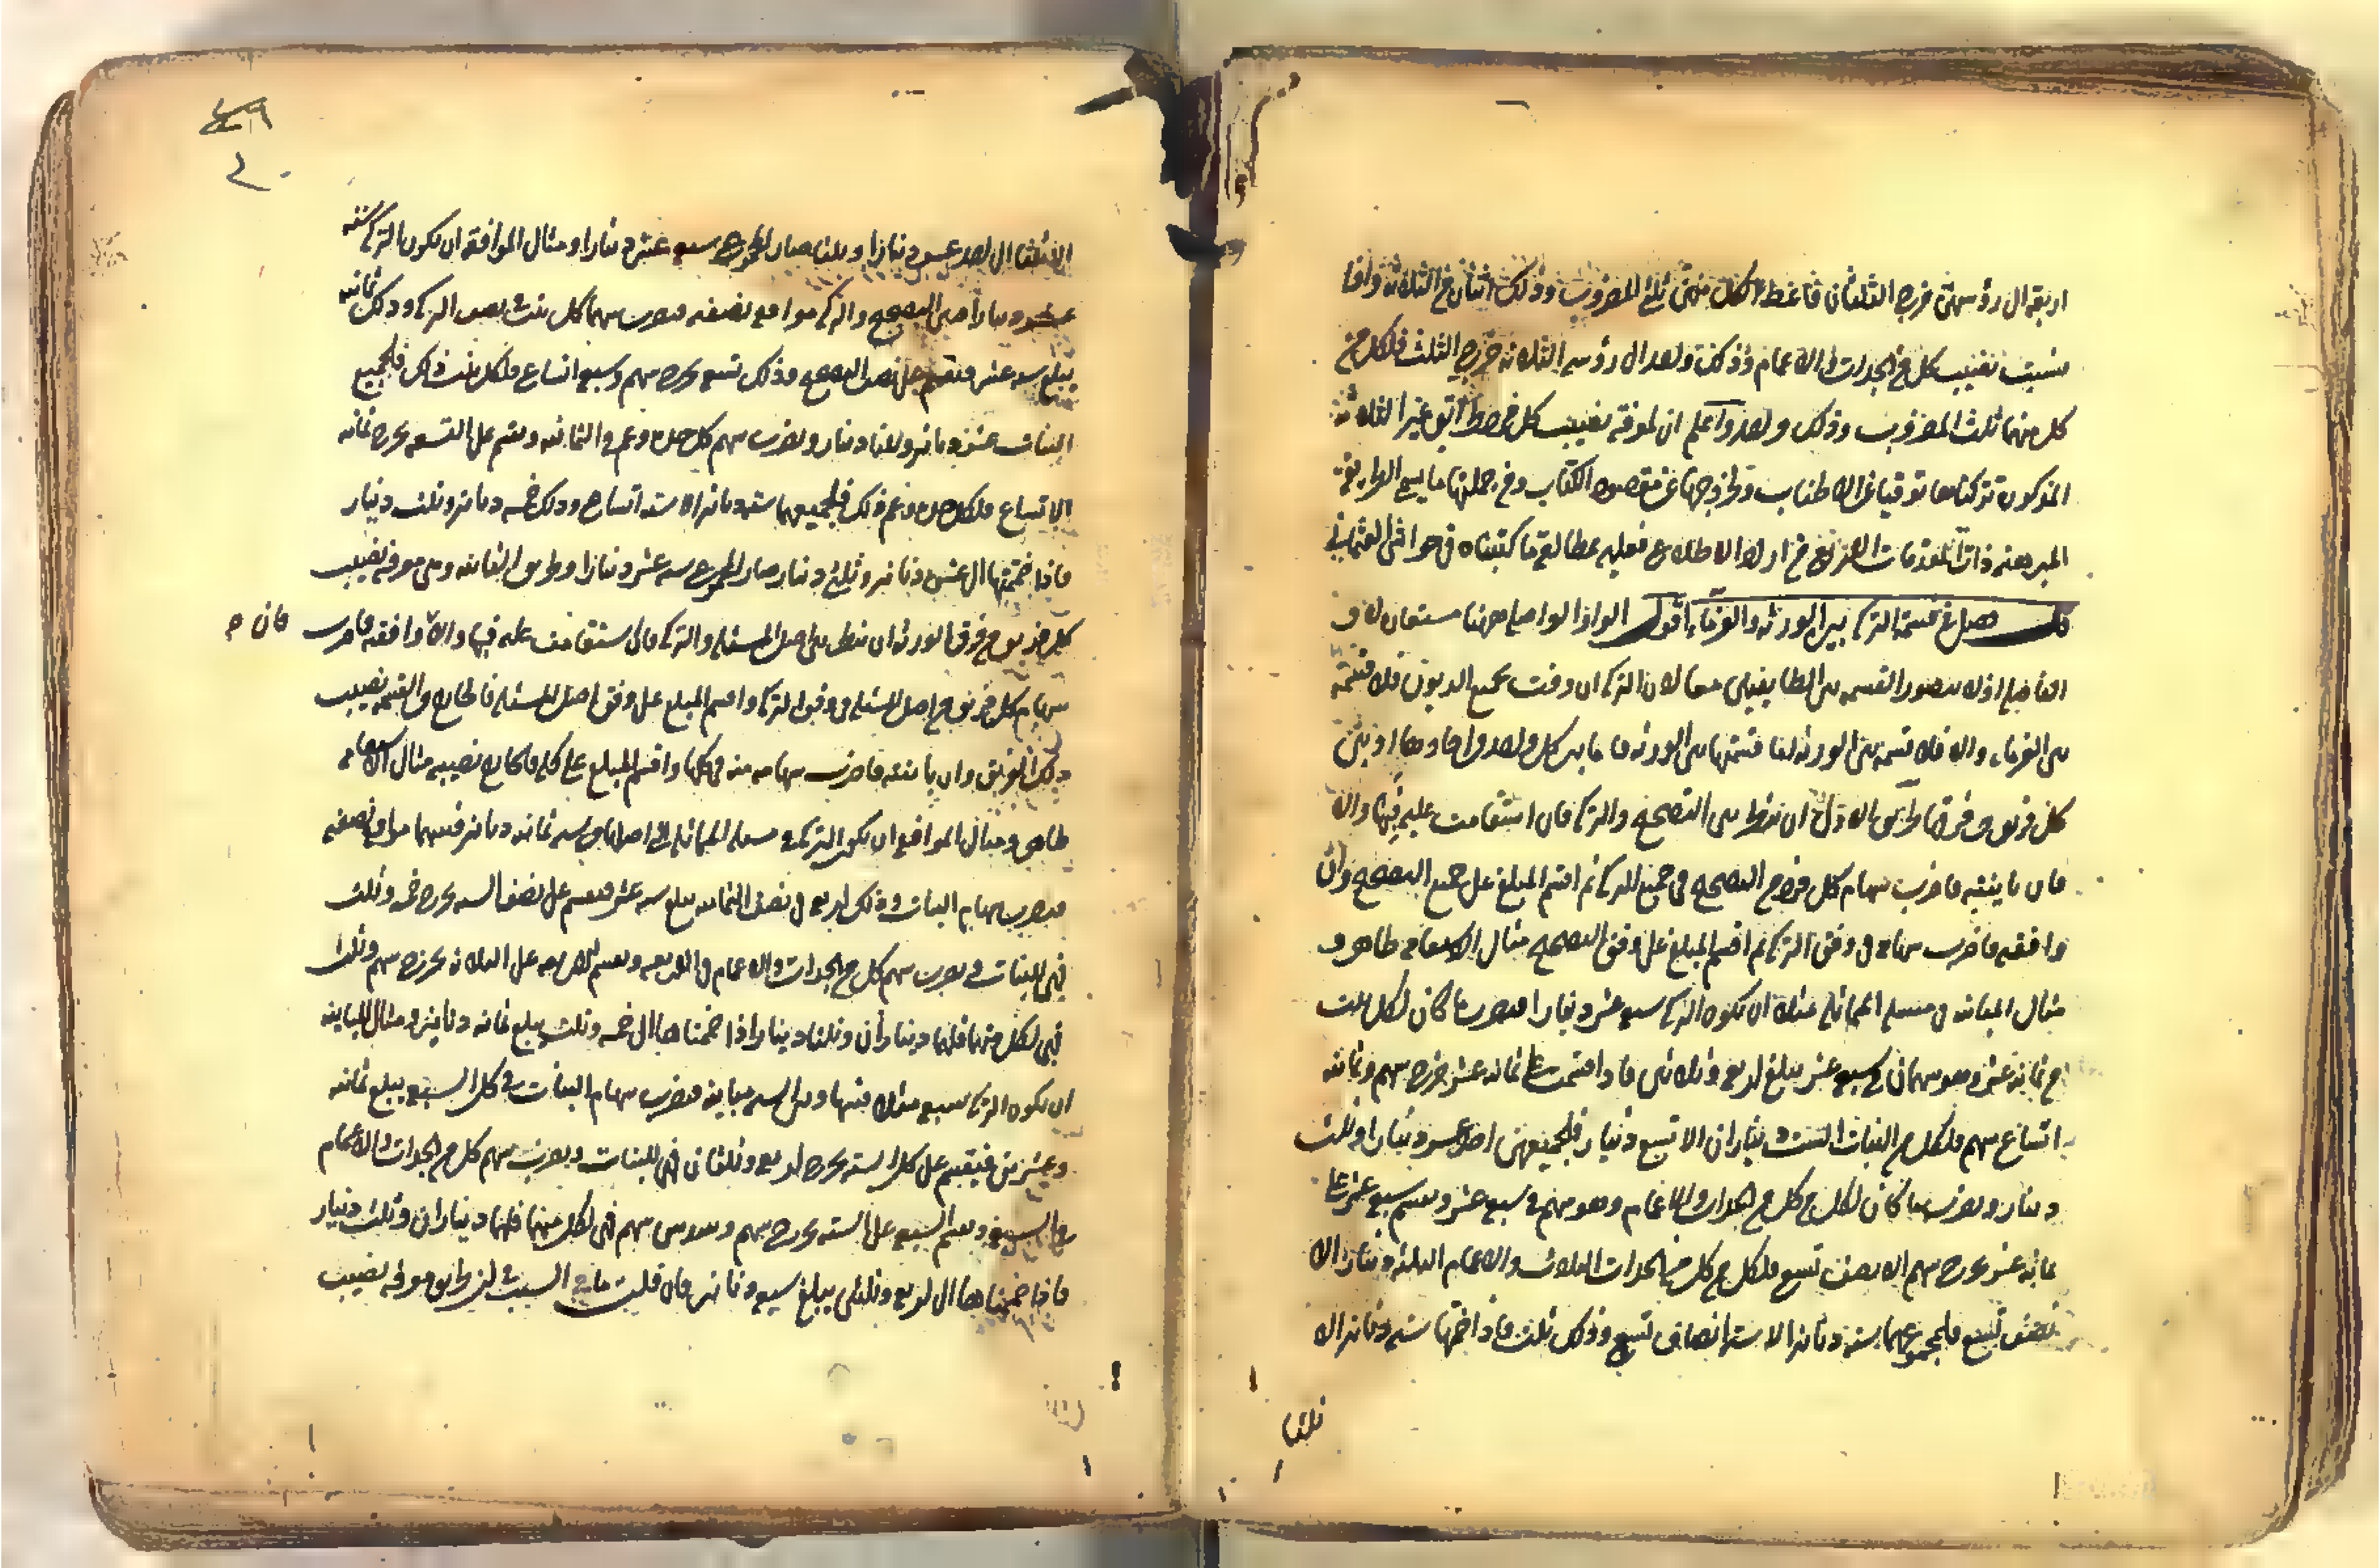 اربعة الى رؤسهن خرج الثلثان فاعط لكل منهن ثلثي المضروب وذلك اثنان من الثلاثة واذا
نسبت نصيب كل من الجدات والاعمام وذلك واحد الى رؤسه الثلاثة خرج الثلث فلكل من
كل منهما ثلث المضروب وذلك واحد واعلم ان لمعرفة نصيب كل طرق غير الثلاثة
المذكورة تركناها توقيا عن الاطناب وخروجها عن مقصود الكتاب ومن جملتها ما
المبرهنة ذات المقدمات من اراد الاطلاع فعليه بمطالعة ما كتبناه في حواشي العثماني
قال فصل في قسمة التركة بين الورثة والغرماء اقول الواو الواصلة ههنا مستعارة لاو
الفاصلة اذ لا يتصور القسمة بين الطايفتين معا لان التركة ان وفت بجميع الديون فلا قسمة
بين الغرماء والا فلا قسمة بين الورثة اما قسمتها بين الورثة فاما بين كل واحد واحادها او بين
كل فريق وفريق وطريق الاول ان ينظر بين التصحيح والتركة فان استقامت عليه فبها والا
فان باينته فاضرب سهام كل من التصحيح في جميع التركة ثم اقسم المبلغ على جميع التصحيح وان
وافقه فاضرب سهامه في وفق التركة ثم اقسم المبلغ على وفق التصحيح مثال الاستقامة ظاهر و
مثال المباينة في مسئلة المماثلة مثلا ان تكون التركة سبعة عشر دينارا فتضرب ما كان لكل بنت
من ثمانية عشر وهو سهمان في سبعة عشر يبلغ اربعة وثلاثين فاذا قسمت على ثمانية عشر خرج سهم وثمانية
اتساع سهم فلكل من البنات الست ديناران الا تسع دينار فلجميعهن احد عشر دينارا وثلث
دينار وتضرب ما كان لكل من كل من الجدات والاعمام وهو سهم في سبعة عشر وتقسم سبعة عشر على
ثمانية عشر يخرج سهم الا نصف تسع فلكل من كل من الجدات الثلاث والاعمام الثلثة دينار الا
نصف تسع فلمجموعهما ستة دنانير الا ستة انصاف تسع وذلك ثلث فاذا ضمتها ستة دنانير الا
ثلثا
الا ثلثا الى احد عشر دينارا وثلث صار المجموع سبعة عشر دينارا ومثال الموافقة ان تكون التركة ستة
عشر دينارا فبين التصحيح والتركة موافقة بنصفه فتضرب سهما كل بنت في نصف التركة وذلك ثمانية
يبلغ ستة عشر فتقسم على نصف التصحيح وذلك تسعة يخرج سهم وسبعة اتساع فلكل بنت ذلك فلجميع
البنات عشرة دنانير وثلثا دينار وتضرب سهم كل جدة وعم في الثمانية وتقسم على التسعة يخرج ثمانية
الاتساع فلكل جدة وعم ذلك فلجميعهما ستة دنانير الا ستة اتساع وذلك خمسة دنانير وثلث دينار
فاذا ضممتها الى عشرة دنانير وثلثي دينار صار المجموع ستة عشر دينارا وطريق الثانية وهي معرفة نصيب
كل فريق من فرق الورثة ان ينظر بين اصل المسئلة والتركة فان استقامت عليه فبها والا وافقه فاضرب فان
سهام كل فريق من اصل المسئلة في وفق التركة واقسم المبلغ على وفق اصل المسئلة فالخارج من القسمة نصيب
ذلك الفريق وان باينته فاضرب سهامه منه في كلها واقسم المبلغ على كله فالخارج نصيبه مثال الاستقامة
ظاهر ومثال الموافقة ان تكون التركة في مسئلة المماثلة التي اصلها من ستة ثمانية دنانير فبينهما موافقة بنصفه
فتضرب سهام البنات وذلك اربعة في نصف الثمانية يبلغ ستة عشر فتقسم على نصف الستة يخرج خمسة وثلث
فهي للبنات وتضرب سهم كل من الجدات والاعمام في الاربعة وتقسم الاربعة على الثلاثة يخرج سهم وثلث
فهي لكل منهما فلهما ديناران وثلثا دينار اذا ضممناها الى خمسة وثلث يبلغ ثمانية دنانير ومثال المباينة
ان تكون التركة سبعة مثلا فبينها وبين الستة مباينة فتضرب سهام البنات في كل السبعة يبلغ ثمانية
وعشرين فيقسم على كل الستة يخرج اربعة وثلثان فهي للبنات وتضرب سهم كل من الجدات والاعمام
في السبعة وتقسم السبعة على الستة يخرج سهم وسدس سهم فهي لكل منهما فلهما ديناران وثلث دينار
فاذا ضممناها الى اربعة وثلثين يبلغ سبعة دنانير فان قلت ما السبب في ان طريق معرفة نصيب